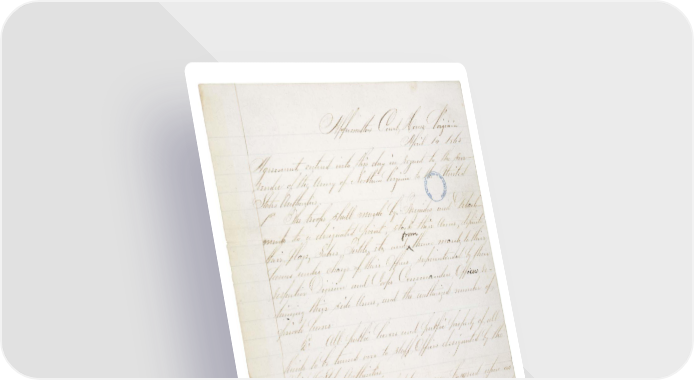 Appomattox Court House Virginia
April 10 1865
Agreement entered into this day in regard to the surrender
of the Army of Northern Virginia to the United
States Authorities.
1st The troops shall march by Brigades and
to a designated point, stack their Arms, deposit
their flags, Sabres, Pistols, etc. and from thence march to their
homes under charge of their Officers, superintended by their
respective Division and Corps Commanders, Officers
retaining their side Arms, and the authorized number of
private horses.
2. All public horses and public property of all
kinds to be turned over to Staff Officers designated by the